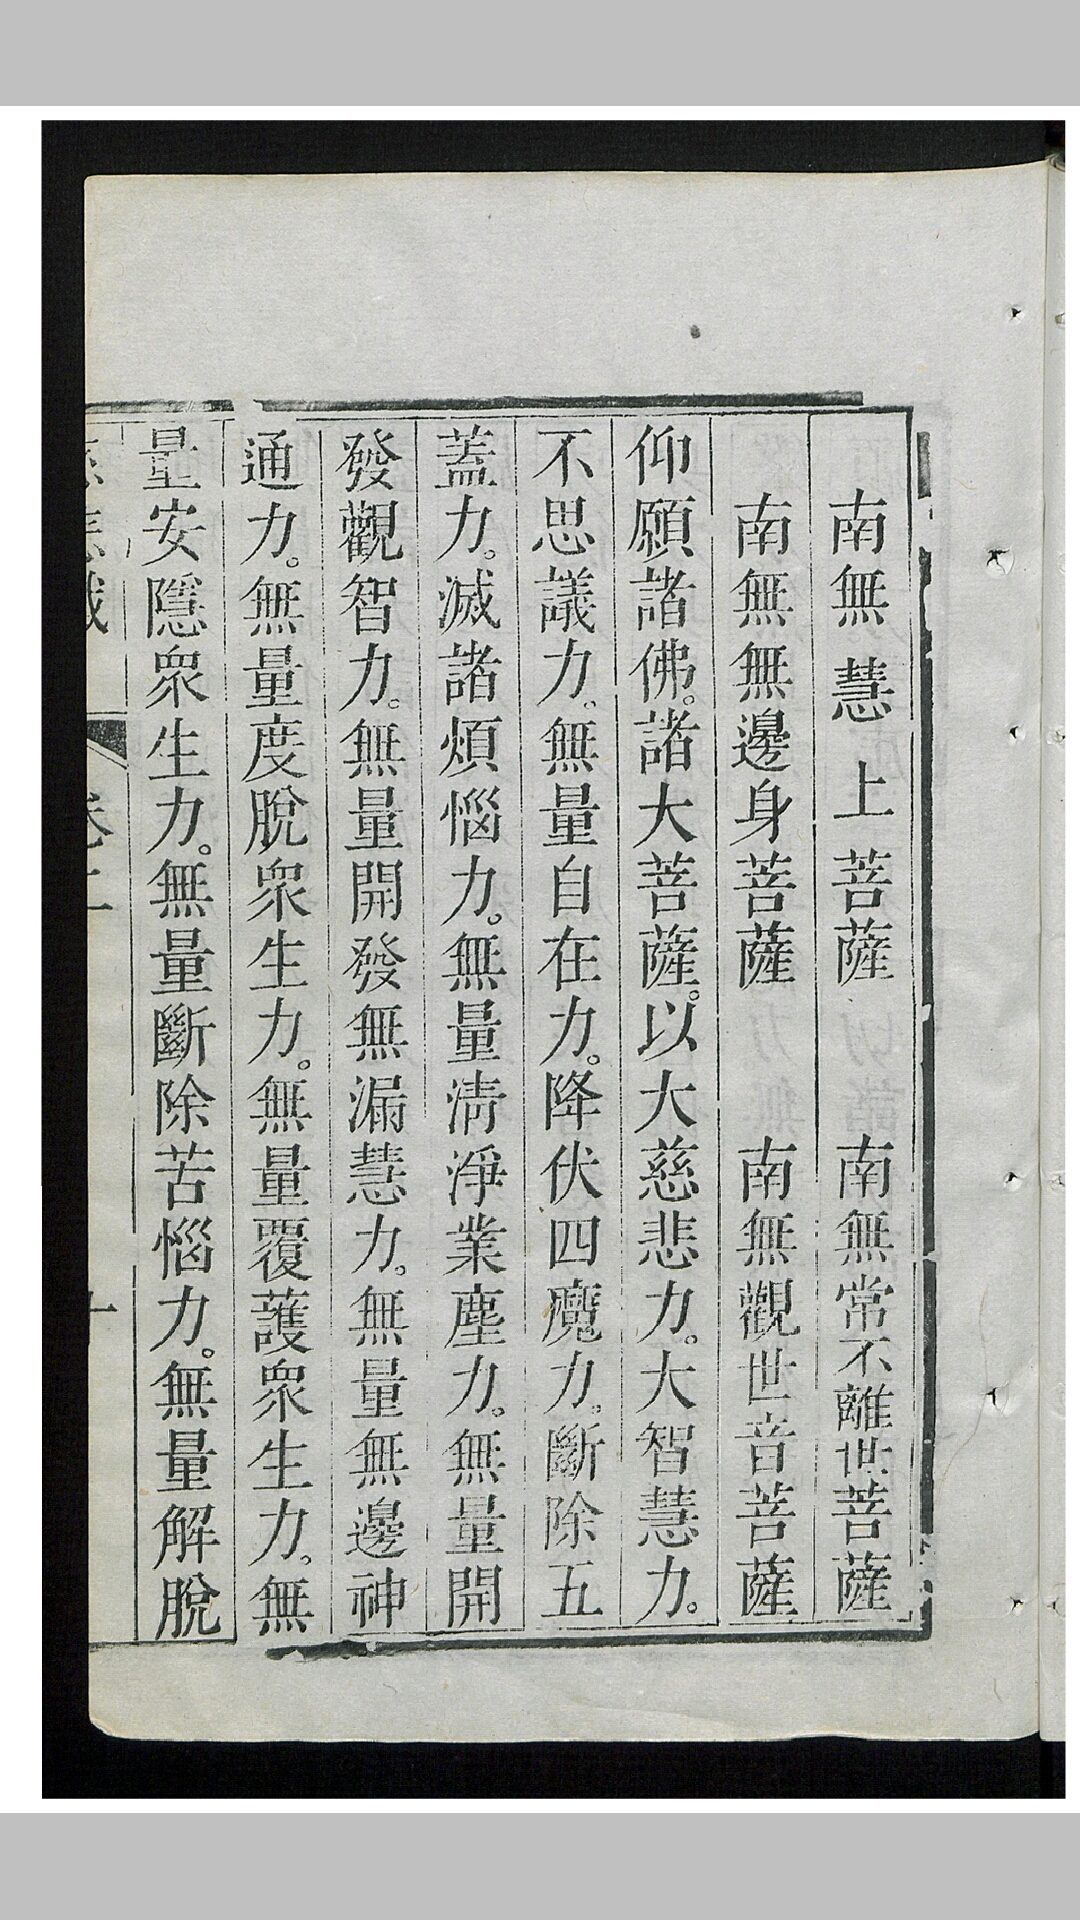 南無慧上菩薩　南無常不離世菩薩
南無無邊身菩薩　南無觀世音菩薩
仰願諸佛。諸大菩薩。以大慈悲力。大智慧力。
不思議力。無量自在力。降伏四魔力。斷除五
蓋力。滅諸煩惱力。無量清淨業塵力。無量開
發觀智力。無量開發無漏慧力。無量無邊神
通力。無量度脫眾生力。無量覆護眾生力。無
量安隱眾生力。無量斷除苦惱力。無量解脫
慈悲懺　卷二　十